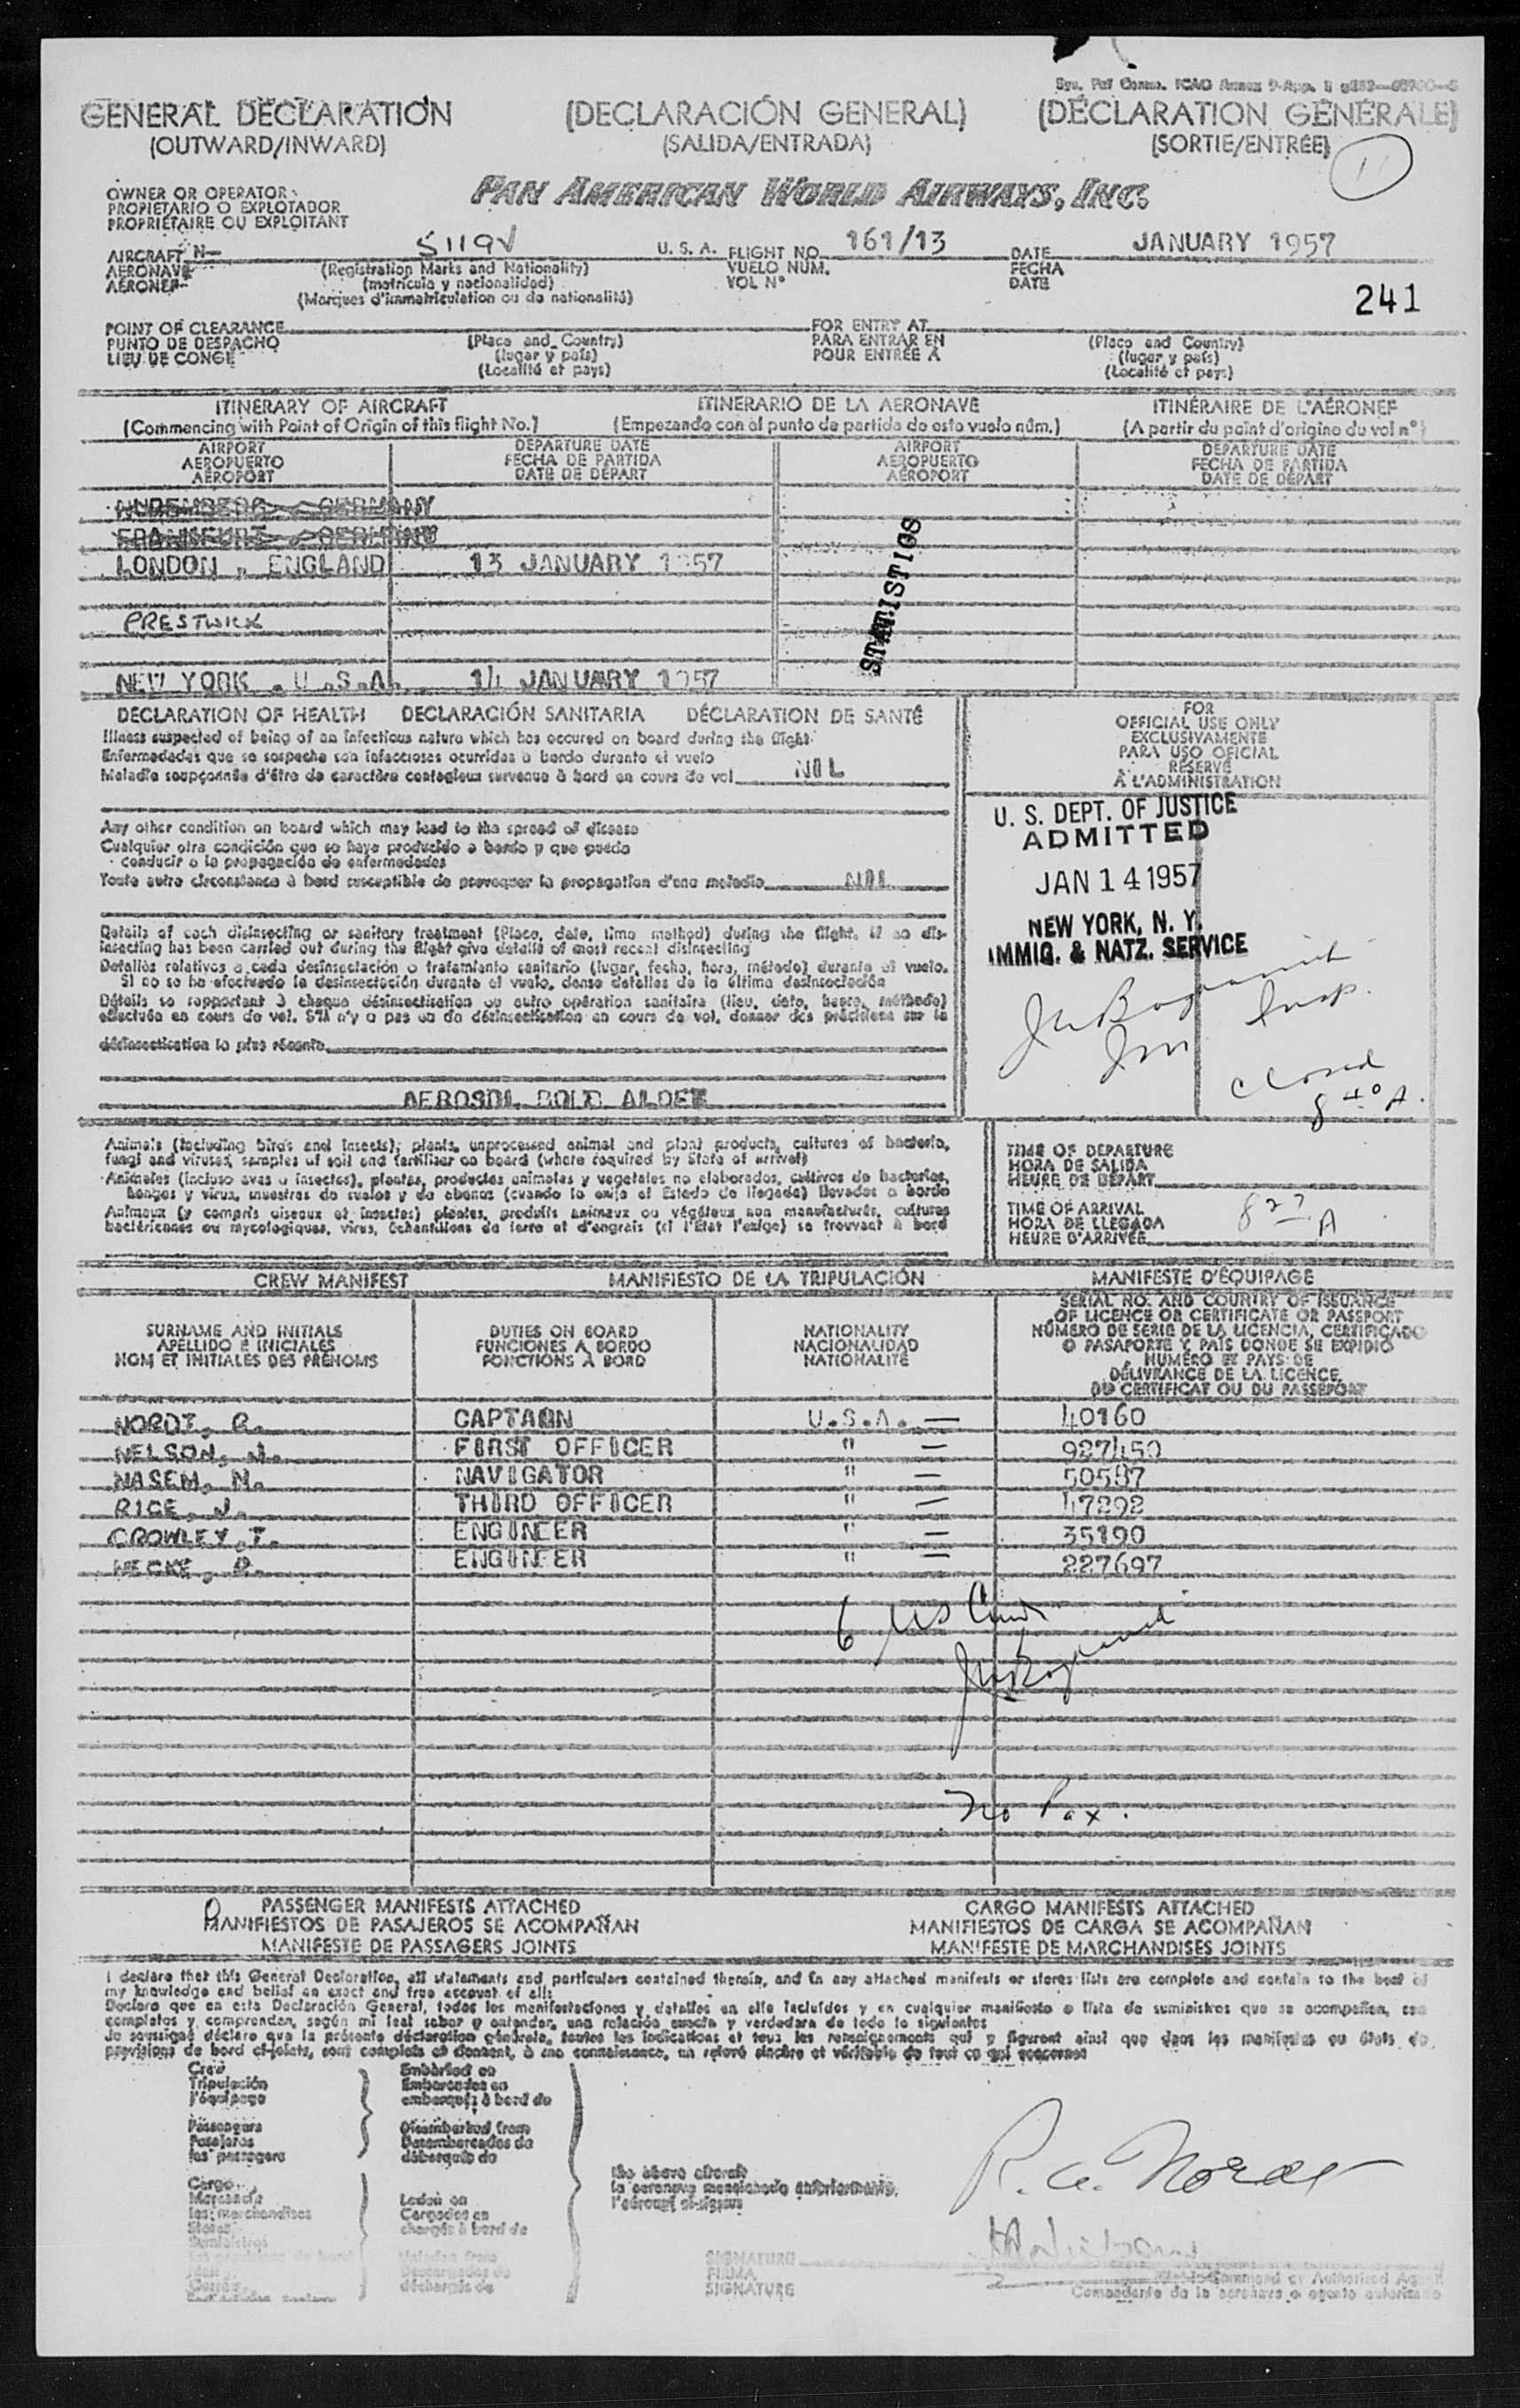 GENERAL DECLARATION (DECLARACIÓN GENERAL) (DÉCLARATION GÉNÉRALE)
(OUTWARD/INWARD) (SALIDA/ENTRADA) (SORTIE/ENTRÉE)
OWNER OR OPERATOR
PROPIETARIO O EXPLOTADOR
PROPRIÉTAIRE OU EXPLOITANT
PAN AMERICAN WORLD AIRWAYS, INC.
AIRCRAFT N- 5119V U. S. A. FLIGHT NO. 161/13 DATE JANUARY 1957
AERONAVE (Registration Marks and Nationality) VUELO NÚM. FECHA
AÉRONEF (matrícula y nacionalidad) VOL N° DATE
(Marques d'immatriculation ou de nationalité)
241
POINT OF CLEARANCE FOR ENTRY AT
PUNTO DE DESPACHO (Place and Country) PARA ENTRAR EN (Place and Country)
LIEU DE CONGÉ (lugar y país) POUR ENTRÉE A (lugar y país)
(Localité et pays) (Localité et pays)
ITINERARY OF AIRCRAFT ITINERARIO DE LA AERONAVE ITINÉRAIRE DE L'AÉRONEF
(Commencing with Point of Origin of this flight No.) (Empezando con el punto de partida de este vuelo núm.) (A partir du point d'origine du vol n°)
AIRPORT DEPARTURE DATE AIRPORT DEPARTURE DATE
AEROPUERTO FECHA DE PARTIDA AEROPUERTO FECHA DE PARTIDA
AÉROPORT DATE DE DÉPART AÉROPORT DATE DE DÉPART
NUREMBERG GERMANY
FRANKFURT GERMANY
LONDON , ENGLAND 13 JANUARY 1957
PRESTWICK
NEW YORK . U.S.A. 14 JANUARY 1957
STATISTICS
DECLARATION OF HEALTH DECLARACIÓN SANITARIA DÉCLARATION DE SANTÉ
Illness suspected of being of an infectious nature which has occured on board during the flight
Enfermedades que se sospecha son infecciosas ocurridas a bordo durante el vuelo
Maladie soupçonnée d'être de caractère contagieux survenue à bord en cours de vol NIL
Any other condition on board which may lead to the spread of disease
Cualquier otra condición que se haya producido a bordo y que pueda
conducir a la propagación de enfermedades
Toute autre circonstance à bord susceptible de provoquer la propagation d'une maladie NIL
Details of each disinsecting or sanitary treatment (Place, date, time method) during the flight. If no dis-
insecting has been carried out during the flight give details of most recent disinsecting
Detalles relativos a cada desinsectación o tratamiento sanitario (lugar, fecha, hora, método) durante el vuelo.
Si no se ha efectuado la desinsectación durante el vuelo, dense detalles de la última desinsectación
Détails se rapportant à chaque désinsectisation ou autre opération sanitaire (lieu, date, heure, méthode)
effectuée en cours de vol. S'il n'y a pas eu de désinsectisation en cours de vol, donner des précisions sur la
désinsectisation la plus récente
AEROSOL
FOR
OFFICIAL USE ONLY
EXCLUSIVAMENTE
PARA USO OFICIAL
RÉSERVÉ
À L'ADMINISTRATION
U. S. DEPT. OF JUSTICE
ADMITTED
JAN 14 1957
NEW YORK, N. Y.
IMMIG. & NATZ. SERVICE
Insp.
closed
8 40 A.
Animals (including birds and insects), plants, unprocessed animal and plant products, cultures of bacteria,
fungi and viruses, samples of soil and fertiliser on board (where required by State of arrival)
Animales (incluso aves e insectos), plantas, productos animales y vegetales no elaborados, cultivos de bacterias,
hongos y virus, muestras de suelos y de abonos (cuando lo exija el Estado de llegada) llevados a bordo
Animaux (y compris oiseaux et insectes) plantes, produits animaux ou végétaux non manufacturés, cultures
bactériennes ou mycologiques, virus, échantillons de terre et d'engrais (si l'État l'exige) se trouvant à bord
TIME OF DEPARTURE
HORA DE SALIDA
HEURE DE DÉPART
TIME OF ARRIVAL
HORA DE LLEGADA
HEURE D'ARRIVÉE
CREW MANIFEST MANIFIESTO DE LA TRIPULACIÓN MANIFESTE D'ÉQUIPAGE
SURNAME AND INITIALS DUTIES ON BOARD NATIONALITY
APELLIDO E INICIALES FUNCIONES A BORDO NACIONALIDAD
NOM ET INITIALES DES PRÉNOMS FONCTIONS À BORD NATIONALITÉ
SERIAL NO. AND COUNTRY OF ISSUANCE
OF LICENCE OR CERTIFICATE OR PASSPORT
NÚMERO DE SERIE DE LA LICENCIA, CERTIFICADO
O PASAPORTE Y PAÍS DONDE SE EXPIDIÓ
NUMÉRO ET PAYS DE
DÉLIVRANCE DE LA LICENCE,
DU CERTIFICAT OU DU PASSEPORT
NORDT, R. CAPTAIN U.S.A. — 40160
NELSON, J. FIRST OFFICER " — 927450
NASEM, N. NAVIGATOR " — 50587
RICE, J. THIRD OFFICER " — 47292
CROWLEY, T. ENGINEER " — 35190
HECKE, D. ENGINEER " — 227697
6 US
No Pax.
0 PASSENGER MANIFESTS ATTACHED CARGO MANIFESTS ATTACHED
MANIFIESTOS DE PASAJEROS SE ACOMPAÑAN MANIFIESTOS DE CARGA SE ACOMPAÑAN
MANIFESTE DE PASSAGERS JOINTS MANIFESTE DE MARCHANDISES JOINTS
I declare that this General Declaration, all statements and particulars contained therein, and in any attached manifests or stores lists are complete and contain to the best of
my knowledge and belief an exact and true account of all:
Declaro que en esta Declaración General, todos los manifestaciones y detalles en ella incluídos y en cualquier manifiesto o lista de suministros que se acompañen, son
completos y comprenden, según mi leal saber y entender, una relación exacta y verdadera de todo lo siguiente:
Je soussigné déclare que la présente déclaration générale, toutes les indications et tous les renseignements qui y figurent ainsi que dans les manifestes ou états de
provisions de bord ci-joints, sont complets et donnent, à ma connaissance, un relevé sincère et véritable de tout ce qui concerne:
Crew Embarked on
Tripulación Embarcados en
l'équipage embarqués à bord de
Passengers Disembarked from
Pasajeros Desembarcados de
les passagers débarqués de
Cargo
Mercancía Laden on
les marchandises Cargados en
Stores chargés à bord de
the above aircraft
la aeronave mencionada anteriormente
l'aéronef ci-dessus
R. A. Nordt
SIGNATURE
FIRMA
SIGNATURE
Comandante de la aeronave o agente autorizado